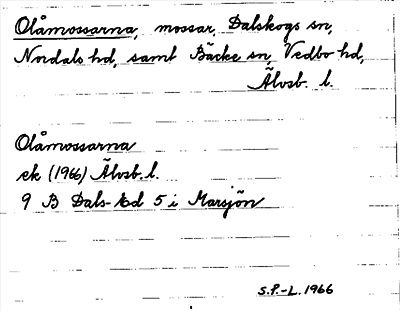 Olåmossarna, mossar, Dalskogs sn,
Nordals hd, samt Bäcke sn, Vedbo hd,
Älvsb. l.
Olåmossarna
ek (1966) Älvsb. l.
9 B Dals-Ed 5 i Marsjön
S.P.-L. 1966